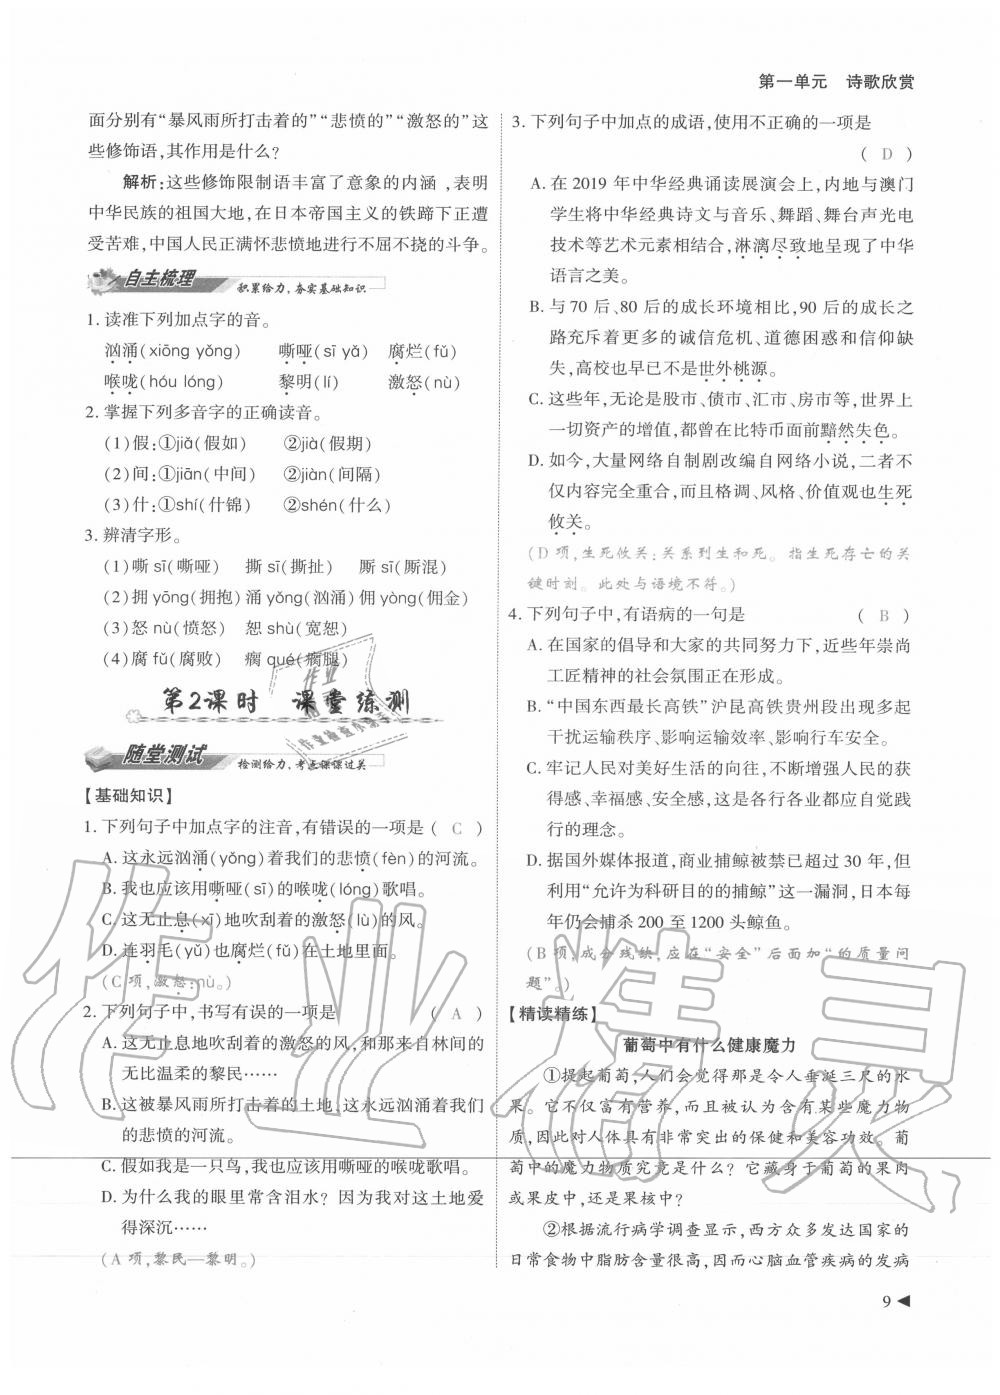 第一单元　诗歌欣赏
面分别有“暴风雨所打击着的”“悲愤的”“激怒的”这
些修饰语,其作用是什么?
解析:这些修饰限制语丰富了意象的内涵,表明
中华民族的祖国大地,在日本帝国主义的铁蹄下正遭
受苦难,中国人民正满怀悲愤地进行不屈不挠的斗争。
自主梳理　积累给力、夯实基础知识
1. 读准下列加点字的音。
汹涌(xiōng yǒng)　嘶哑(sī yǎ)　腐烂(fǔ)
喉咙(hóu lóng)　黎明(lí)　激怒(nù)
2. 掌握下列多音字的正确读音。
(1)假:①jiǎ(假如)　②jià(假期)
(2)间:①jiān(中间)　②jiàn(间隔)
(3)什:①shí(什锦)　②shén(什么)
3. 辨清字形。
(1)嘶 sī(嘶哑)　撕 sī(撕扯)　厮 sī(厮混)
(2)拥 yōng(拥抱) 涌 yǒng(汹涌) 佣 yòng(佣金)
(3)怒 nù(愤怒)　恕 shù(宽恕)
(4)腐 fǔ(腐败)　瘸 qué(瘸腿)
第2课时　课堂练测
随堂测试　检测给力、考点课课过关
【基础知识】
1. 下列句子中加点字的注音,有错误的一项是 ( C )
A. 这永远汹涌(yǒng)着我们的悲愤(fèn)的河流。
B. 我也应该用嘶哑(sī)的喉咙(lóng)歌唱。
C. 这无止息(xī)地吹刮着的激怒(lù)的风。
D. 连羽毛(yǔ)也腐烂(fǔ)在土地里面。
(C 项,激怒:nù。)
2. 下列句子中,书写有误的一项是　( A )
A. 这无止息地吹刮着的激怒的风,和那来自林间的
无比温柔的黎民……
B. 这被暴风雨所打击着的土地,这永远汹涌着我们
的悲愤的河流。
C. 假如我是一只鸟,我也应该用嘶哑的喉咙歌唱。
D. 为什么我的眼里常含泪水? 因为我对这土地爱
得深沉……
(A 项,黎民—黎明。)
3. 下列句子中加点的成语,使用不正确的一项是
( D )
A. 在 2019 年中华经典诵读展演会上,内地与澳门
学生将中华经典诗文与音乐、舞蹈、舞台声光电
技术等艺术元素相结合,淋漓尽致地呈现了中华
语言之美。
B. 与 70 后、80 后的成长环境相比,90 后的成长之
路充斥着更多的诚信危机、道德困惑和信仰缺
失,高校也早已不是世外桃源。
C. 这些年,无论是股市、债市、汇市、房市等,世界上
一切资产的增值,都曾在比特币面前黯然失色。
D. 如今,大量网络自制剧改编自网络小说,二者不
仅内容完全重合,而且格调、风格、价值观也生死
攸关。
(D 项,生死攸关:关系到生和死。指生死存亡的关
键时刻。此处与语境不符。)
4. 下列句子中,有语病的一句是　( B )
A. 在国家的倡导和大家的共同努力下,近些年崇尚
工匠精神的社会氛围正在形成。
B. “中国东西最长高铁”沪昆高铁贵州段出现多起
干扰运输秩序、影响运输效率、影响行车安全。
C. 牢记人民对美好生活的向往,不断增强人民的获
得感、幸福感、安全感,这是各行各业都应自觉践
行的理念。
D. 据国外媒体报道,商业捕鲸被禁已超过 30 年,但
利用“允许为科研目的的捕鲸”这一漏洞,日本每
年仍会捕杀 200 至 1200 头鲸鱼。
(B 项,成分残缺,应在“安全”后面加“的质量问
题”。)
【精读精练】
葡萄中有什么健康魔力
①提起葡萄,人们会觉得那是令人垂涎三尺的水
果。它不仅富有营养,而且被认为含有某些魔力物
质,因此对人体具有非常突出的保健和美容功效。葡
萄中的魔力物质究竟是什么? 它藏身于葡萄的果肉
或果皮中,还是果核中?
②根据流行病学调查显示,西方众多发达国家的
日常食物中脂肪含量很高,因而心脑血管疾病的发病
9
作业精灵